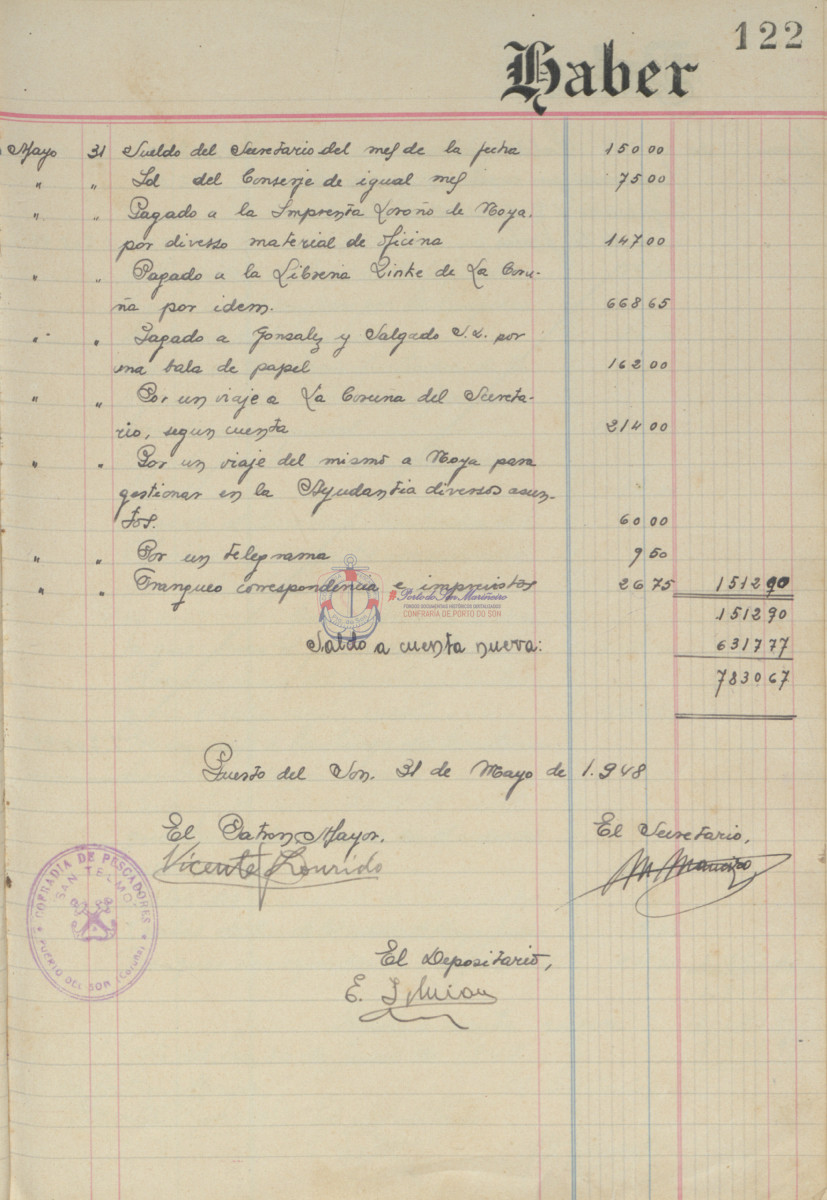 122
Haber
Mayo 31 Sueldo del Secretario del mes de la fecha 150 00
" " Id del Conserje de igual mes 75 00
" " Pagado a la Imprenta Loroño de Noya,
por diverso material de oficina 147 00
" " Pagado a la Libreria Linke de La Coru-
ña por idem. 668 65
" " Pagado a Gonsalez y Salgado S.L. por
una bala de papel 162 00
" " Por un viaje a La Coruña del Secreta-
rio, segun cuenta 214 00
" " Por un viaje del mismo a Noya para
gestionar en la Ayudantia diversos asun-
tos. 60 00
" " Por un telegrama 9 50
" " Franqueo correspondencia e imprevistos 26 75 1512 90
1512 90
Saldo a cuenta nueva: 6317 77
7830 67
Porto do Son Mariñeiro
FONDOS DOCUMENTAIS HISTÓRICOS DIXITALIZADOS
CONFRARÍA DE PORTO DO SON
Puerto del Son, 31 de Mayo de 1.948
El Patron Mayor, El Secretario,
Vicente Lourido
COFRADIA DE PESCADORES
SAN TELMO
PUERTO DEL SON (Coruña)
El Depositario,
E.